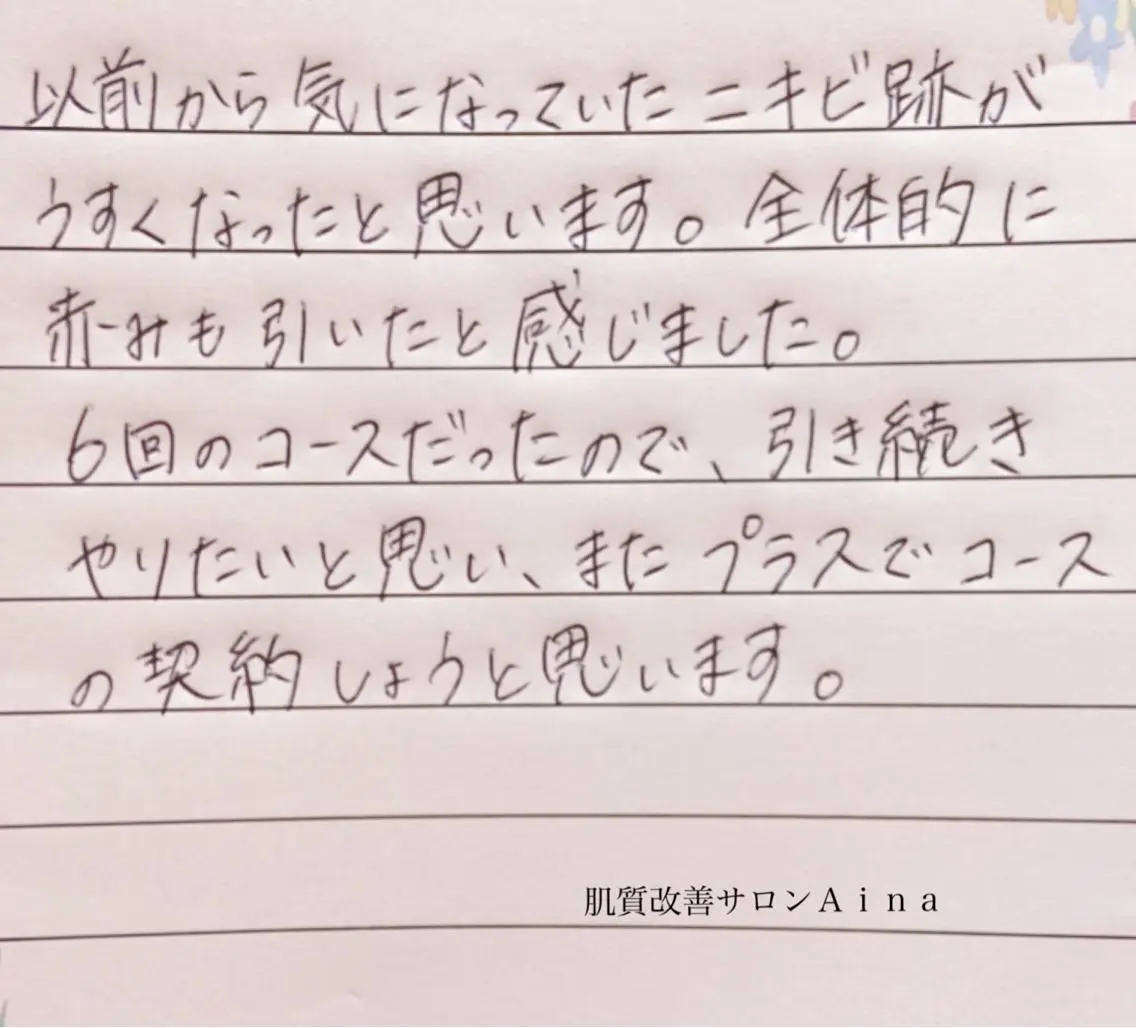 以前から気になっていたニキビ跡が
うすくなったと思います。全体的に
赤みも引いたと感じました。
6回のコースだったので、引き続き
やりたいと思い、またプラスでコース
の契約しようと思います。
肌質改善サロンAina